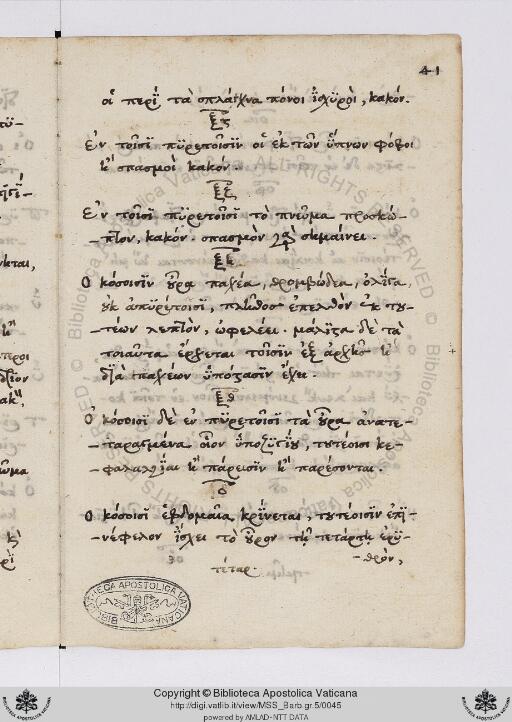 41
οἱ περὶ τὰ σπλάγχνα πόνοι ἰσχυροὶ, κακόν.
ξϛ
Ἐν τοῖσι πυρετοῖσιν οἱ ἐκ τῶν ὕπνων φόβοι
ἢ σπασμοὶ κακόν.
ξζ
Ἐν τοῖσι πυρετοῖσι τὸ πνεῦμα προσκό-
-πτον, κακόν. σπασμὸν γὰρ σημαίνει.
ξη
Ὁκόσοισιν οὖρα παχέα, θρομβώδεα, ὀλίγα,
οὐκ ἀπυρέτοισι, πλῆθος ἐπελθὸν ἐκ του-
-τέων λεπτὸν, ὠφελέει. μάλιστα δὲ τὰ
τοιαῦτα ἔρχεται τοῖσιν ἐξ ἀρχῆς ἢ
διὰ παχέων ὑπόστασιν ἔχει.
ξθ
Ὁκόσοισι δὲ ἐν πυρετοῖσι τὰ οὖρα ἀνατε-
-ταραγμένα οἷον ὑποζυγίου, τουτέοισι κε-
-φαλαλγίαι ἢ πάρεισιν ἢ παρέσονται.
ο
Ὁκόσοισι ἑβδομαῖα κρίνεται, τουτέοισιν ἐπι-
-νέφελον ἴσχει τὸ οὖρον τῇ τετάρτῃ ἐρυ-
-θρόν,
τέταρ.
BIBLIOTHECA APOSTOLICA VATICANA
Copyright © Biblioteca Apostolica Vaticana
http://digi.vatlib.it/view/MSS_Barb.gr.5/0045
powered by AMLAD-NTT DATA